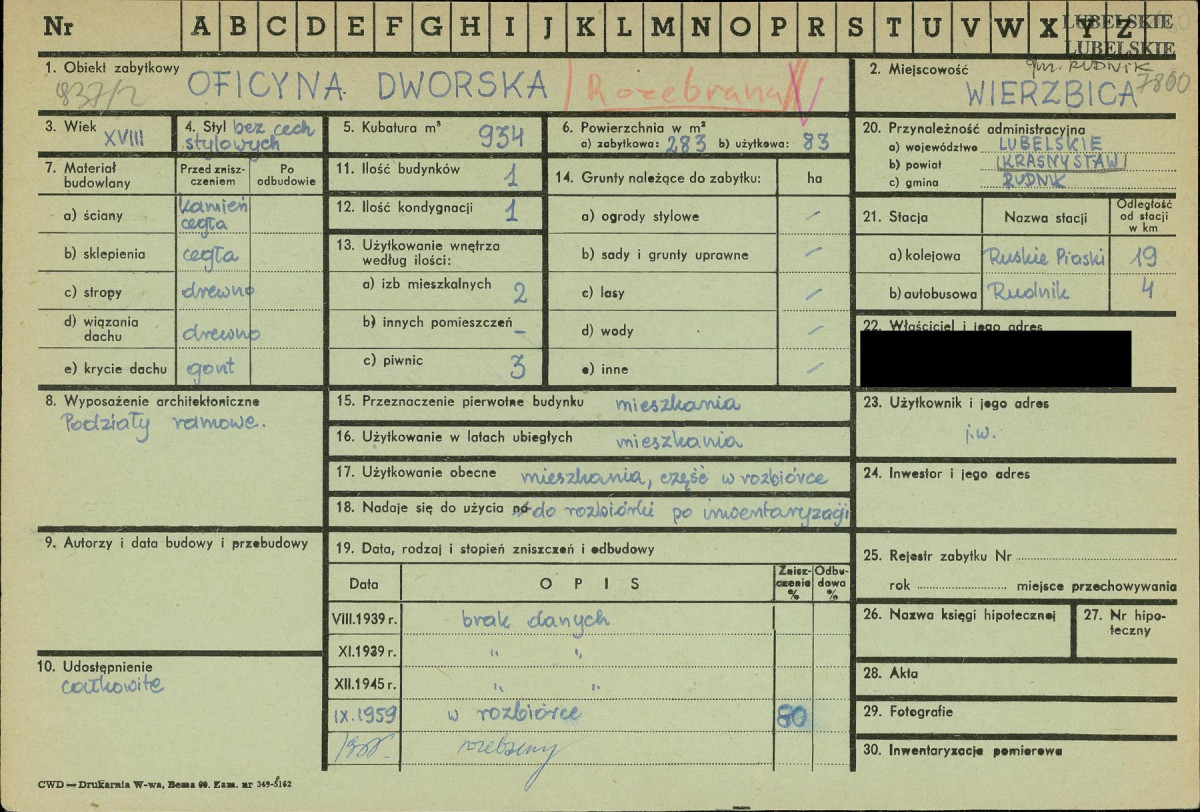 Nr A B C D E F G H I J K L M N O P R S T U V W X Y Z
LUBELSKIE
LUBELSKIE
1. Obiekt zabytkowy
OFICYNA DWORSKA
Rozebrana
837/2
2. Miejscowość
gm. RUDNIK
WIERZBICA
7800
3. Wiek
XVIII
4. Styl bez cech
stylowych
5. Kubatura m³ 934
6. Powierzchnia w m²
a) zabytkowa: 283 b) użytkowa: 83
20. Przynależność administracyjna
a) województwo LUBELSKIE
b) powiat (KRASNYSTAW)
c) gmina RUDNIK
7. Materiał budowlany
Przed zniszczeniem
Po odbudowie
a) ściany kamień
cegła
b) sklepienia cegła
c) stropy drewno
d) wiązania dachu drewno
e) krycie dachu gont
11. Ilość budynków 1
12. Ilość kondygnacji 1
13. Użytkowanie wnętrza
według ilości:
a) izb mieszkalnych 2
b) innych pomieszczeń –
c) piwnic 3
14. Grunty należące do zabytku: ha
a) ogrody stylowe –
b) sady i grunty uprawne –
c) lasy –
d) wody –
e) inne –
21. Stacja
Nazwa stacji
Odległość
od stacji
w km
a) kolejowa Ruskie Piaski 19
b) autobusowa Rudnik 4
22. Właściciel i jego adres
8. Wyposażenie architektoniczne
Podziały ramowe.
15. Przeznaczenie pierwotne budynku mieszkania
16. Użytkowanie w latach ubiegłych mieszkania
17. Użytkowanie obecne mieszkania, część w rozbiórce
18. Nadaje się do użycia na do rozbiórki po inwentaryzacji
23. Użytkownik i jego adres
j.w.
24. Inwestor i jego adres
9. Autorzy i data budowy i przebudowy
19. Data, rodzaj i stopień zniszczeń i odbudowy
Data
O P I S
Zniszczenia %
Odbudowa %
VIII.1939 r. brak danych
XI.1939 r. " "
XII.1945 r. " "
IX.1959 w rozbiórce 80
25. Rejestr zabytku Nr
rok miejsce przechowywania
26. Nazwa księgi hipotecznej
27. Nr hipoteczny
10. Udostępnienie
całkowite
28. Akta
29. Fotografie
30. Inwentaryzacja pomiarowa
CWD — Drukarnia W-wa, Bema 60. Zam. nr 349-5162